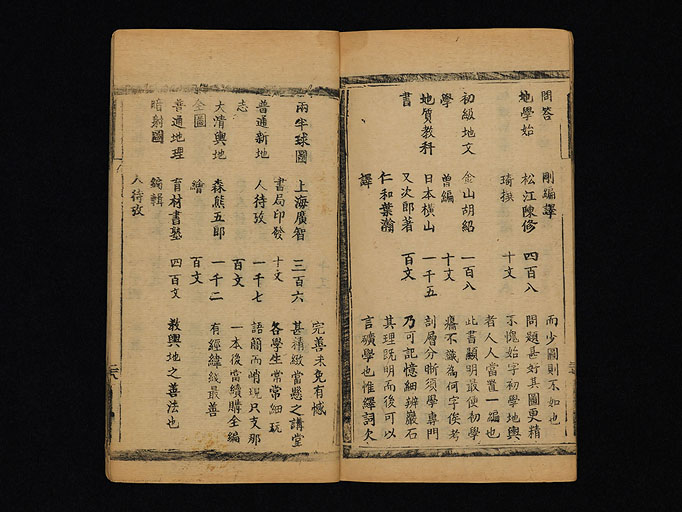 問答 剛編譯 而少圖則不如也
地學始 松江陳修 四百八 問題甚好其圖更精
琦撰 十文 不愧始字初學地輿
者人人當置一編也
初級地文 金山胡紹 一百八 此書顯明最便初學
學 曾編 十文 癢不識為何字俟考
地質教科 日本橫山 一千五 剖層分晰須學專門
書 又次郎著 百文 乃可記憶細辨巖石
仁和葉瀚 其理既明而後可以
譯 言礦學也惟繹詞欠
完善未免有憾
兩半球圖 上海廣智 三百六 甚精緻當懸之講堂
書局印發 十文 各學生常常細玩
普通新地 人待攷 一千七 語簡而峭現只支那
志 百文 一本後當續購全編
大清輿地 森熊五郎 一千二 有經緯綫最善
全圖 繪 百文
普通地理 育材書塾 四百文 教輿地之善法也
暗射圖 編輯
人待攷